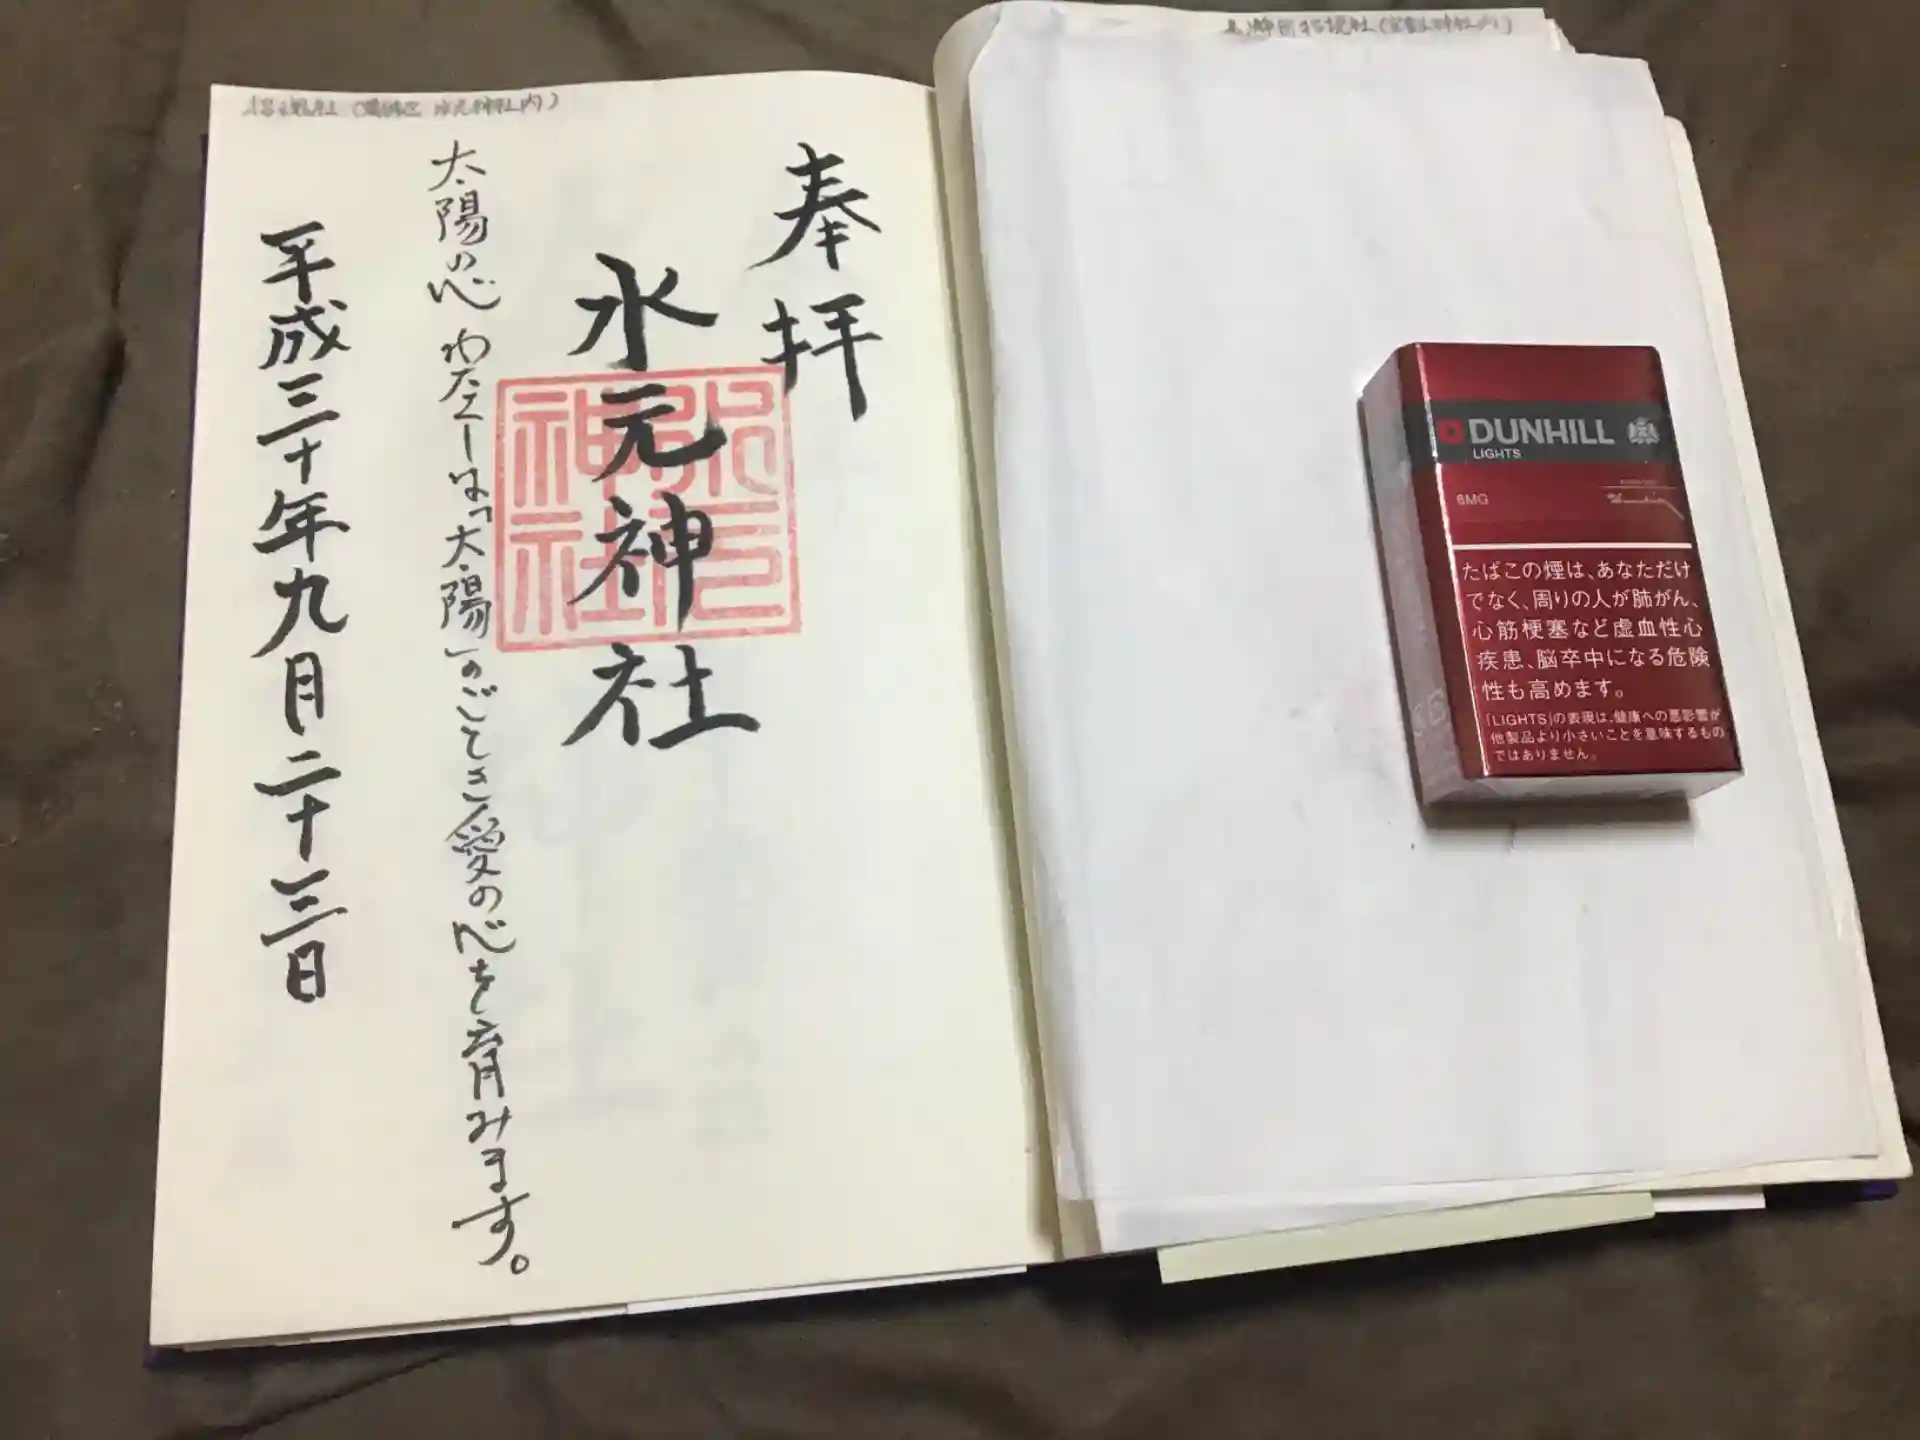 奉拝
水元神社
水元
神社
太陽の心 わたくしは「太陽」のごとき愛の心を育みます。
平成三十年九月二十三日
招魂社( 水元神社内)
招魂社(
DUNHILL
LIGHTS
6MG
たばこの煙は、あなただけ
でなく、周りの人が肺がん、
心筋梗塞など虚血性心
疾患、脳卒中になる危険
性も高めます。
「LIGHTS」の表現は、健康への悪影響が
他製品より小さいことを意味するもの
ではありません。